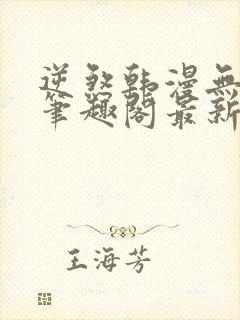 逆煞韩漫無
筆趣阁最新
王海芳